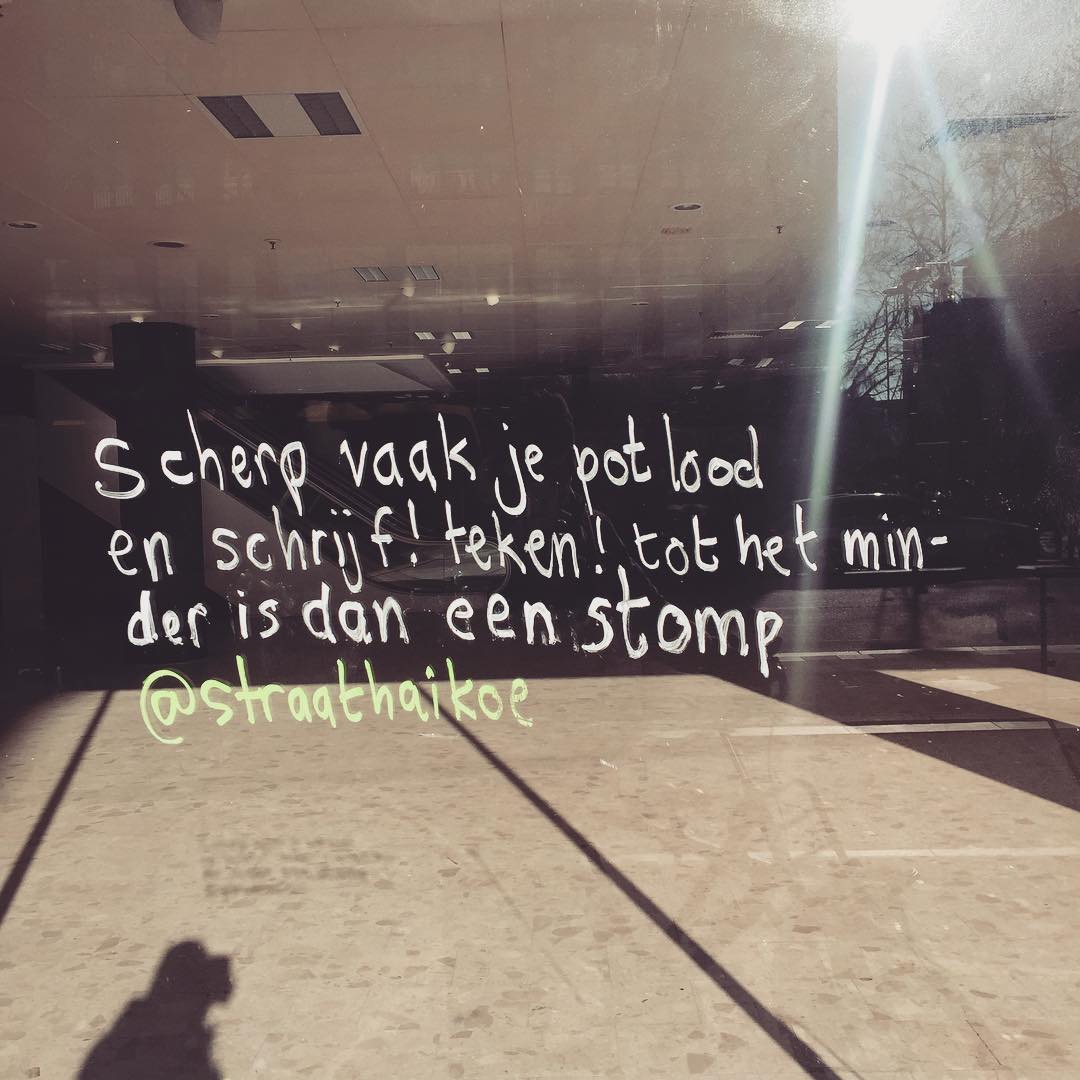 Scherp vaak je potlood
en schrijf! teken! tot het min-
der is dan een stomp
@straathaikoe